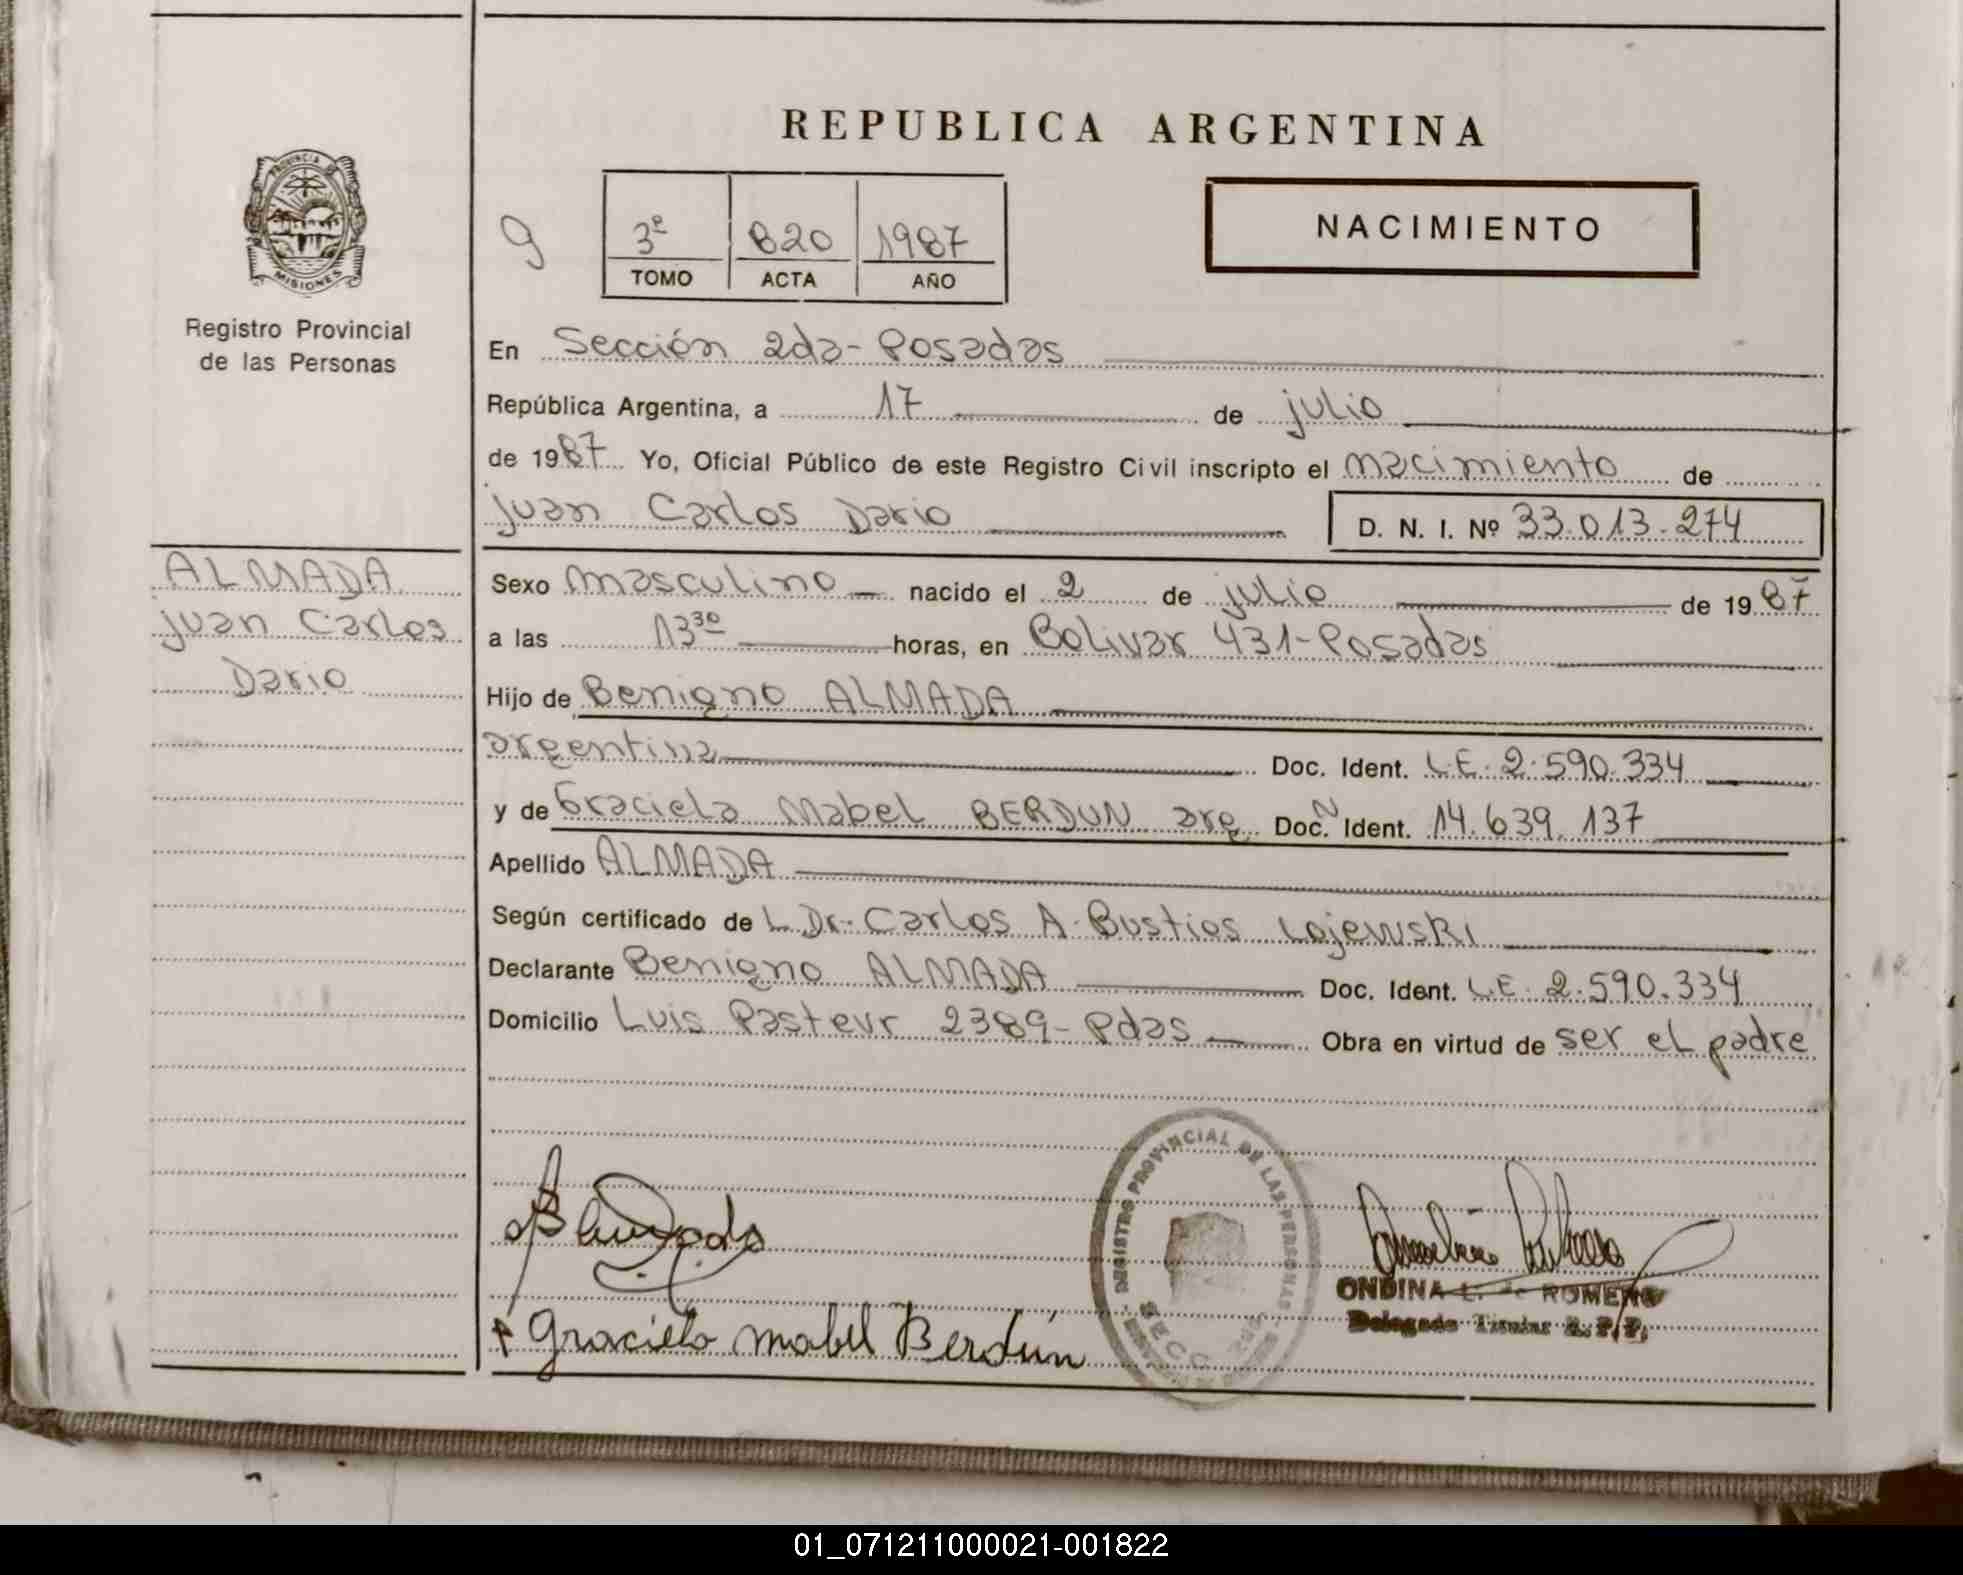 REPUBLICA ARGENTINA
PROVINCIA
MISIONES
Registro Provincial
de las Personas
9
3º 820 1987
TOMO ACTA AÑO
NACIMIENTO
En Sección 2da - Posadas
República Argentina, a 17 de julio
de 1987 Yo, Oficial Público de este Registro Civil inscripto el nacimiento de
juan Carlos Dario D. N. I. Nº 33.013.274
ALMADA
juan Carlos
Dario
Sexo masculino nacido el 2 de julio de 1987
a las 13³⁰ horas, en Bolivar 431 - Posadas
Hijo de Benigno ALMADA
argentina Doc. Ident. L.E. 2.590.334
y de Graciela Mabel BERDUN arg. Doc. Ident. 14.639.137
Apellido ALMADA
Según certificado de L Dr. Carlos A. Bustios Lojewski
Declarante Benigno ALMADA Doc. Ident. L.E. 2.590.334
Domicilio Luis Pasteur 2389 - Pdas Obra en virtud de ser el padre
REGISTRO PROVINCIAL DE LAS PERSONAS
SECC
ONDINA L. de ROMERO
Delegado Titular R. P. P.
Graciela mabel Berdún
01_071211000021-001822